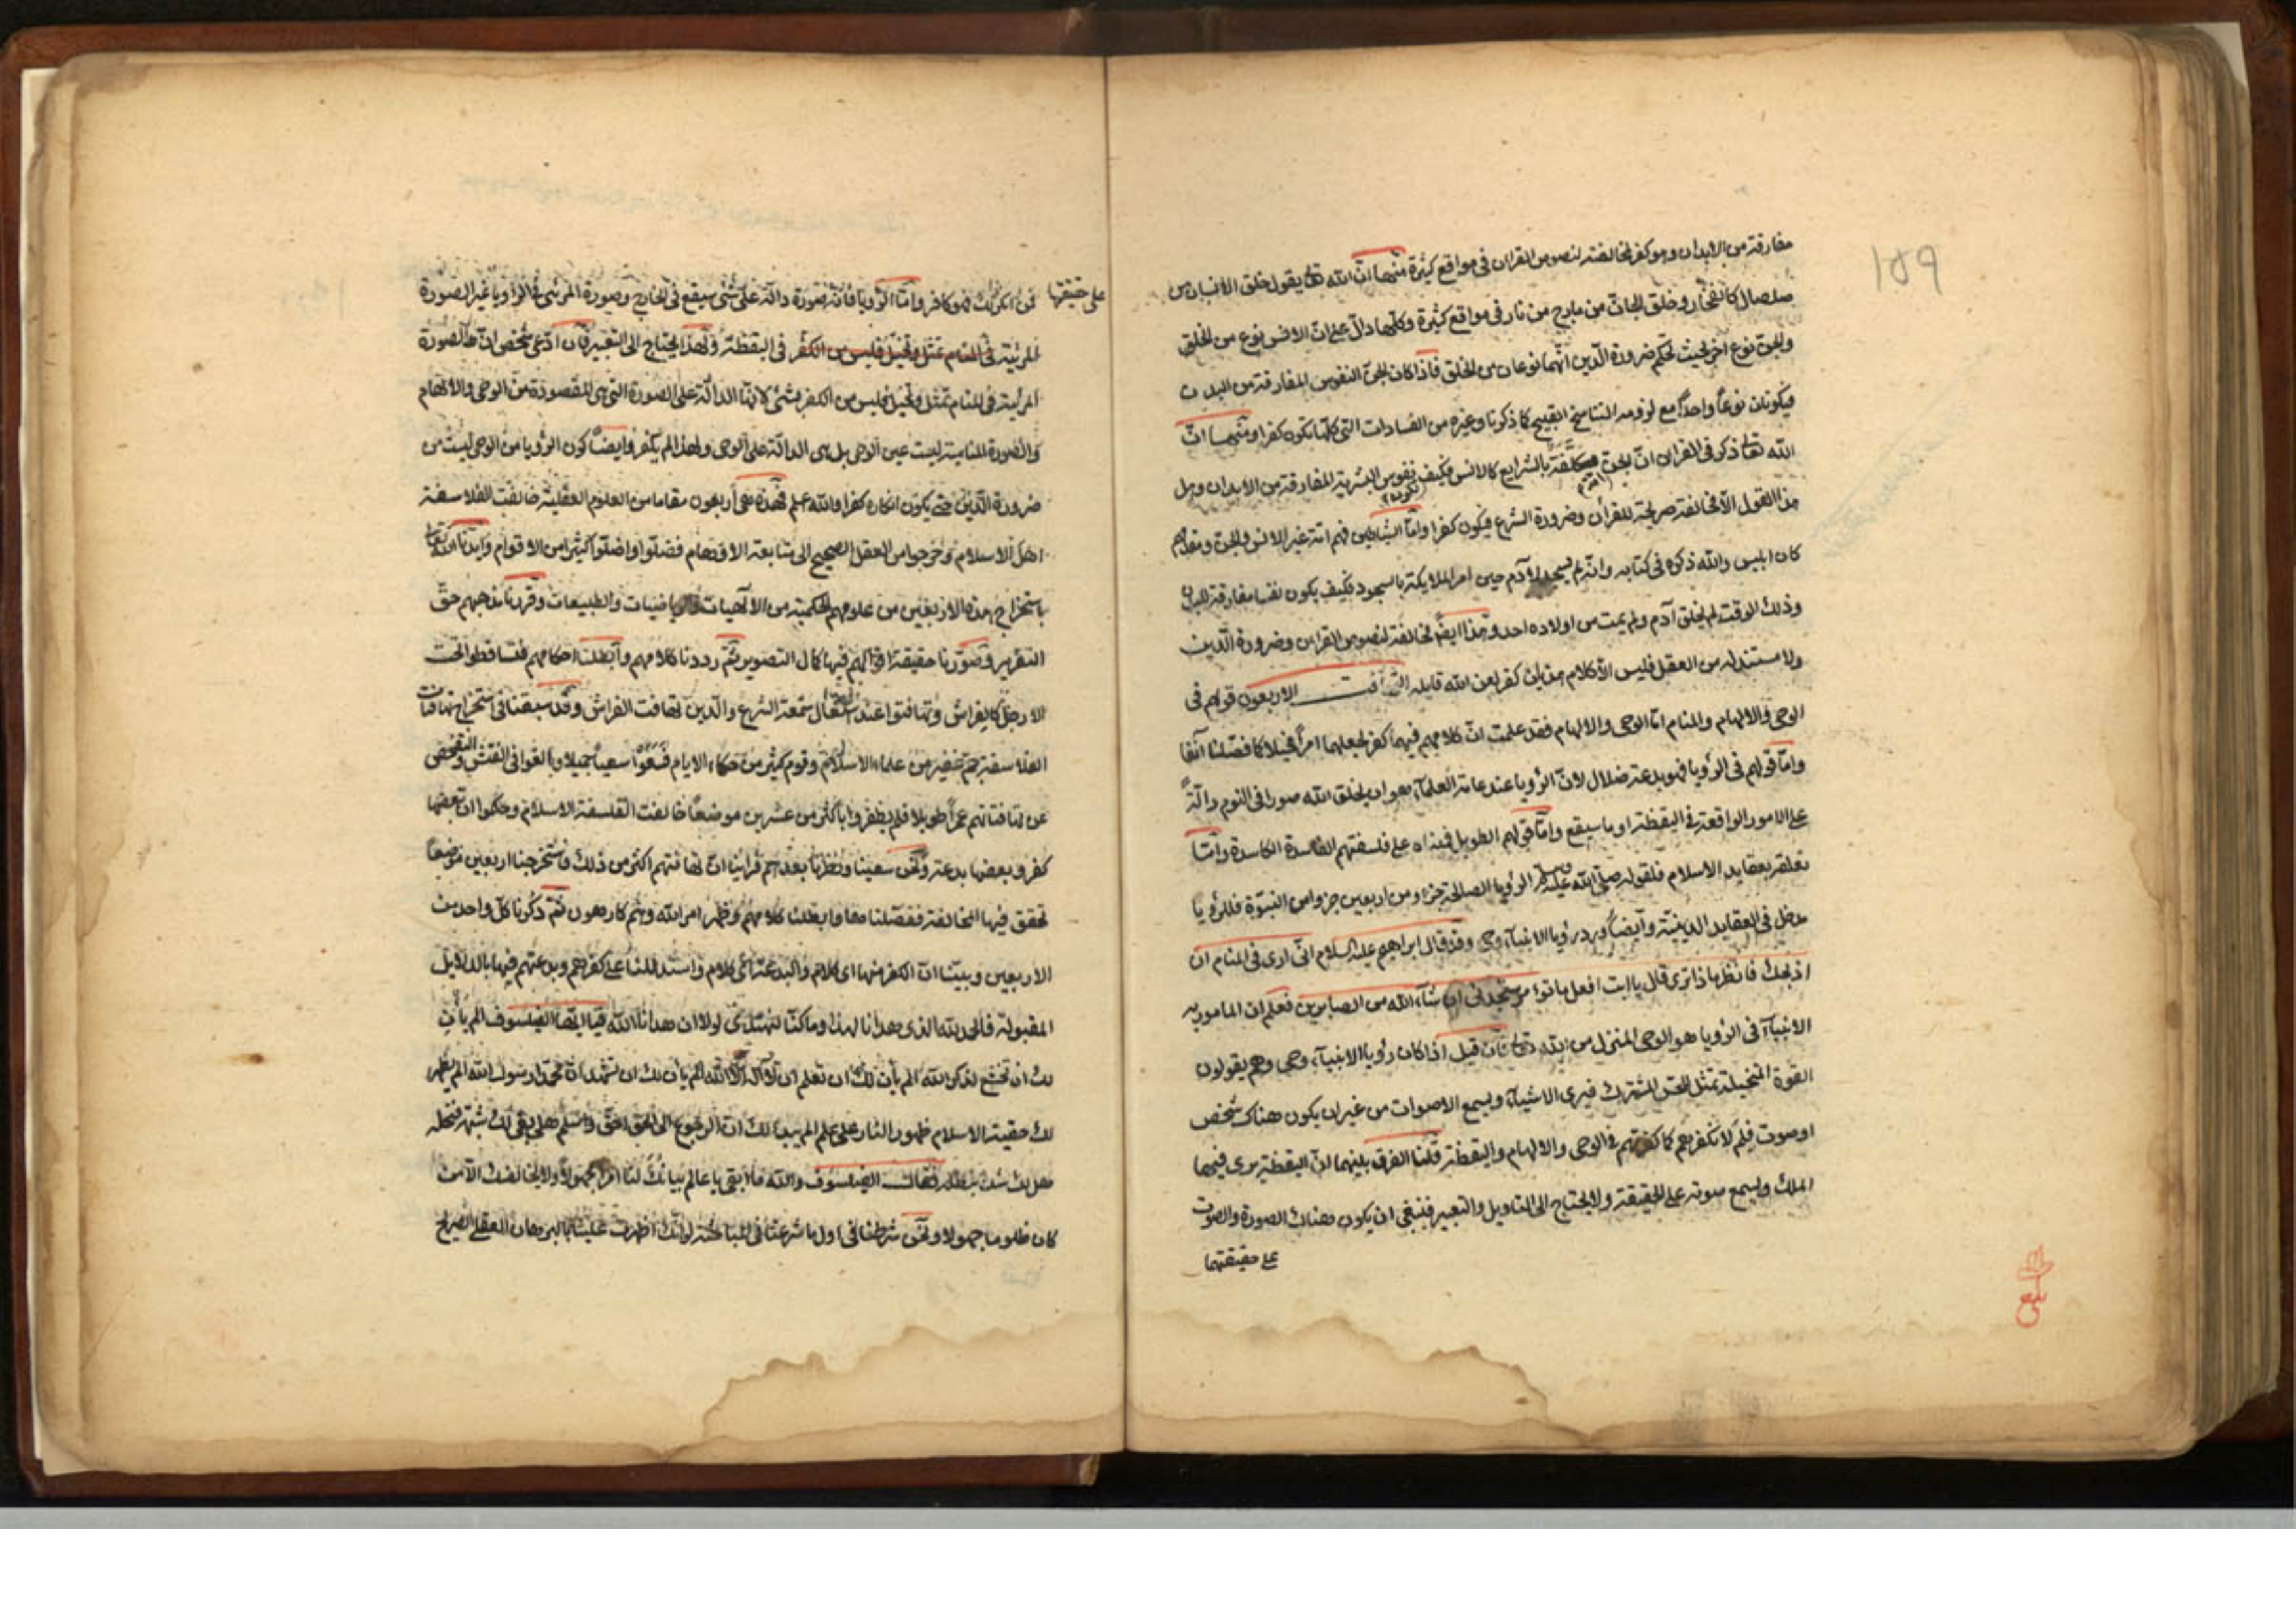 ١٥٩
مفارقة من الابدان وهو كفر لمخالفته لنصوص القران فى مواقع كثيرة منها ان الله تعالى يقول خلق الانسان من
صلصال كالفخار وخلق الجان من مارج من نار فى مواقع كثيرة وكلها دال على ان الانس نوع من الخلق
والجن نوع آخر بحيث تحكم ضرورة الدين انهما نوعان من الخلق فاذا كان الجن النفوس المفارقة من البدن
فيكونان نوعاً واحداً مع لزومه التناسخ القبيح كما ذكرنا وغيره من الفسادات التى كلها تكون كفرا ومنها انّ
الله تعالى ذكر فى القران انّ الجن مكلفة بالشرايع كالانس فكيف نفوس البشرية المفارقة من الابدان وهل
هذا القول الا مخالفة صريحة للقرآن وضرورة الشرع فيكون كفرا وامّا الشياطين فهم امة غير الانس والجن ومقدمهم
كان ابليس والله ذكره فى كتابه وانه لم يسجد لآدم حين امر الملايكة بالسجود فكيف يكون نفسا مفارقة للبدن
وذلك الوقت لم يخلق آدم ولم يمت من اولاده احد وهذا ايضاً مخالفة لنصوص القران وضرورة الدين
ولا مستند له من العقل فليس الا كلام هذيان كفر لعن الله قايله الاربعون قولهم فى
الوحى والالهام والمنام امّا الوحى والالهام فقد علمت انّ كلامهم فيهما كفر لجعلهما امراً مخيلا كما فصّلنا آنفا
وامّا قولهم فى الرؤيا فهو بدعة ضلال لانّ الرؤيا عند عامة العلمآء هو ان يخلق الله صورا فى النوم دالّةً
على الامور الواقعة فى اليقظة او ما سيقع وامّا قولهم الطويل فمبناه على فلسفتهم الفاسدة الكاسدة وامّا
تعلقه بعقايد الاسلام فلقوله صلى الله عليه وسلم الرؤيا الصالحة جزء من اربعين جزوا من النبوة فللرؤيا
مدخل فى العقايد الدينيّة وايضاً ورد رؤيا الانبيآء وحى وقد قال ابراهيم عليه السلام انّى ارى فى المنام ان
اذبحك فانظر ماذا ترى قال يا ابت افعل ما تؤمر ستجدنى ان شآء الله من الصابرين فعلم ان المامور به
الانبيآء فى الرؤيا هو الوحى المنزل من الله تعالى فان قيل اذا كان رؤيا الانبيآء وحى وهم يقولون
القوة المتخيلة تمثل للحس المشترك فيرى الاشيآء ويسمع الاصوات من غير ان يكون هناك شخص
او صوت فلِمَ لا نكفرهم كما كفرتهم فى الوحى والالهام واليقظة قلنا الفرق بينهما انّ اليقظة يرى فيها
الملك ويسمع صوته على الحقيقة ولا يحتاج الى التاويل والتعبير فينبغى ان يكون هناك الصورة والصوت
على حقيقتهما
على حقيقتها
فمن انكر ذلك فهو كافر وامّا الرؤيا فانّه صورة دالّة على شئ سيقع فى الخارج وصورة المرئى فى الرؤيا غير الصورة
المرئية فى المنام تمثل وتخيل فليس من الكفر فى اليقظة ولهذا يحتاج الى التعبير فان ادّعى شخص انّ هذه الصورة
المرئية فى المنام تمثل وتخيل فليس من الكفر بشئ لانها الدالّة على الصورة التى هى المقصودة من الوحى والالهام
والصورة المنامية ليست عين الوحى بل هى الدالّة على الوحى ولهذا لم يكفر وايضاً كون الرؤيا من الوحى ليست من
ضرورة الدين حتى يكون انكاره كفرا والله اعلم فهذه هى أربعون مقاما من العلوم العقلية خالفت الفلاسفة
اهل الاسلام وخرجوا من العقل الصحيح الى متابعة الاوهام فضلّوا واضلّوا كثيرا من الاقوام وايدنا الله تعالى
باستخراج هذه الاربعين من علومهم الحكمية من الالهيات والرياضيات والطبيعات وقررنا مذهبهم حقّ
التقرير وصوّرنا حقيقة اقوالهم فيها كمال التصوير ثمّ رددنا كلامهم وابطلنا احكامهم فتساقطوا تحت
الارجل كالفراش وتهافتوا عند اشتعال شمعة الشرع والدين تهافت الفراش وقد سبقنا فى استخراج تهافتات
الفلاسفة جمّ غفير من علماء الاسلام وقوم كثير من حكماء الايام فسَعَوْا سعياً جميلا وبالغوا فى الفتش والتفحّص
عن تهافتاتهم عمراً طويلا فلم يظفروا باكثر من عشرين موضعاً خالفت الفلسفة الاسلام وحكموا انّ بعضها
كفر وبعضها بدعة ونحن سعينا ونظرنا بعدهم فراينا انّ تهافتهم اكثر من ذلك فاستخرجنا اربعين موضعاً
تحقق فيها المخالفة ففصّلناها وابطلنا كلامهم وظهر امر الله وهم كارهون ثمّ ذكرنا كلّ واحد من
الاربعين وبيّنا انّ الكفر منها اى كلام والبدعة اى كلام واستدللنا على كفرهم وبدعتهم فيها بالدلايل
المقبولة فالحمد لله الذى هدانا لهذا وما كنّا لنهتدى لولا ان هدانا الله فيا ايّها الفيلسوف الم يأن
لك ان تخشع لذكر الله الم يأن لك ان تعلم ان لا اله الّا الله الم يأن لك ان تشهد انّ محمّدا رسول الله الم يظهر
لك حقية الاسلام ظهور النار على علم الم يبد لك انّ الرجوع الى الحق احقّ واسلم هل بقى لك شبهة فنحلّه
هل لك شك فقال الفيلسوف والله ما ابقى يا عالم بيانك لنا امرا مجهولاً ولا يخالفك الّا من
كان ظلوما جهولا ونحن شرطنا فى اول ما شرعنا فى المباحثة لو انّك اظهرت علينا بالبرهان العقلى الصريح